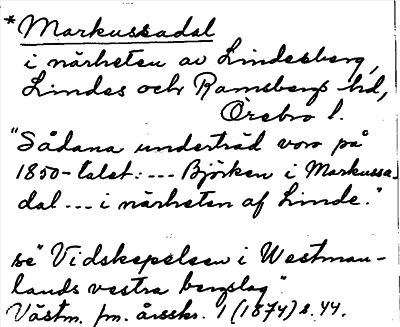 * Markussadal
i närheten av Lindesberg,
Lindes och Ramsbergs hd,
Örebro l.
"Sådana underträd voro på
1850-talet: --- Björken i Markussa-
dal --- i närheten af Linde."
se "Vidskepelsen i Westman-
lands vestra bergslag"
Västm. fm. årsskr. 1 (1874) s. 44.